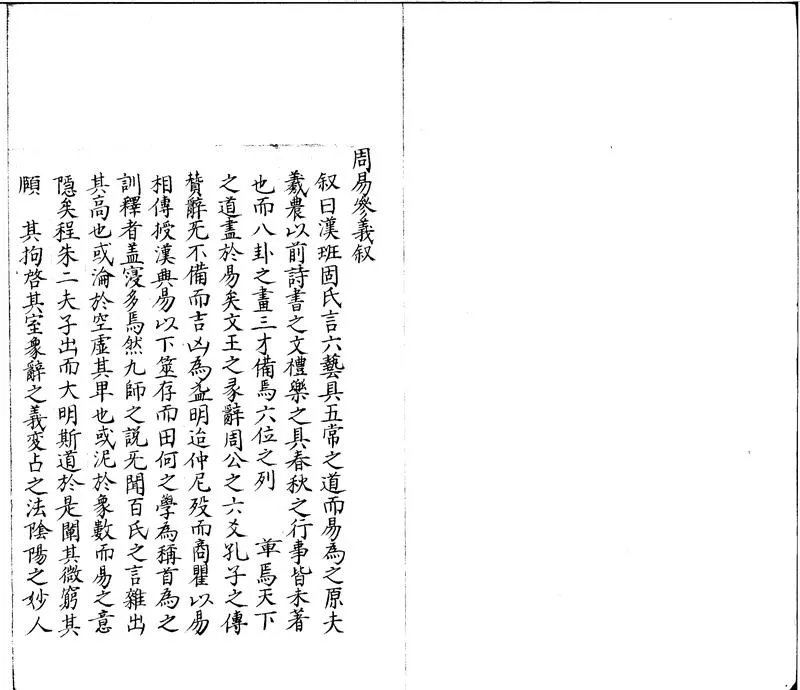 周易參義叙
叙曰漢班固氏言六藝具五常之道而易為之原夫
羲農以前詩書之文禮樂之具春秋之行事皆未著
也而八卦之畫三才備焉六位之列 章焉天下
之道盡於易矣文王之彖辭周公之六爻孔子之傳
贊辭旡不備而吉凶為益明迨仲尼殁而商瞿以易
相傳授漢典易以下筮存而田何之學為稱首為之
訓釋者盖寖多焉然九師之說旡聞百氏之言雜出
其高也或淪於空虛其卑也或泥於象數而易之意
隠矣程朱二夫子出而大明斯道於是闡其微窮其
願 其拘啓其室象辭之義变占之法陰陽之妙人